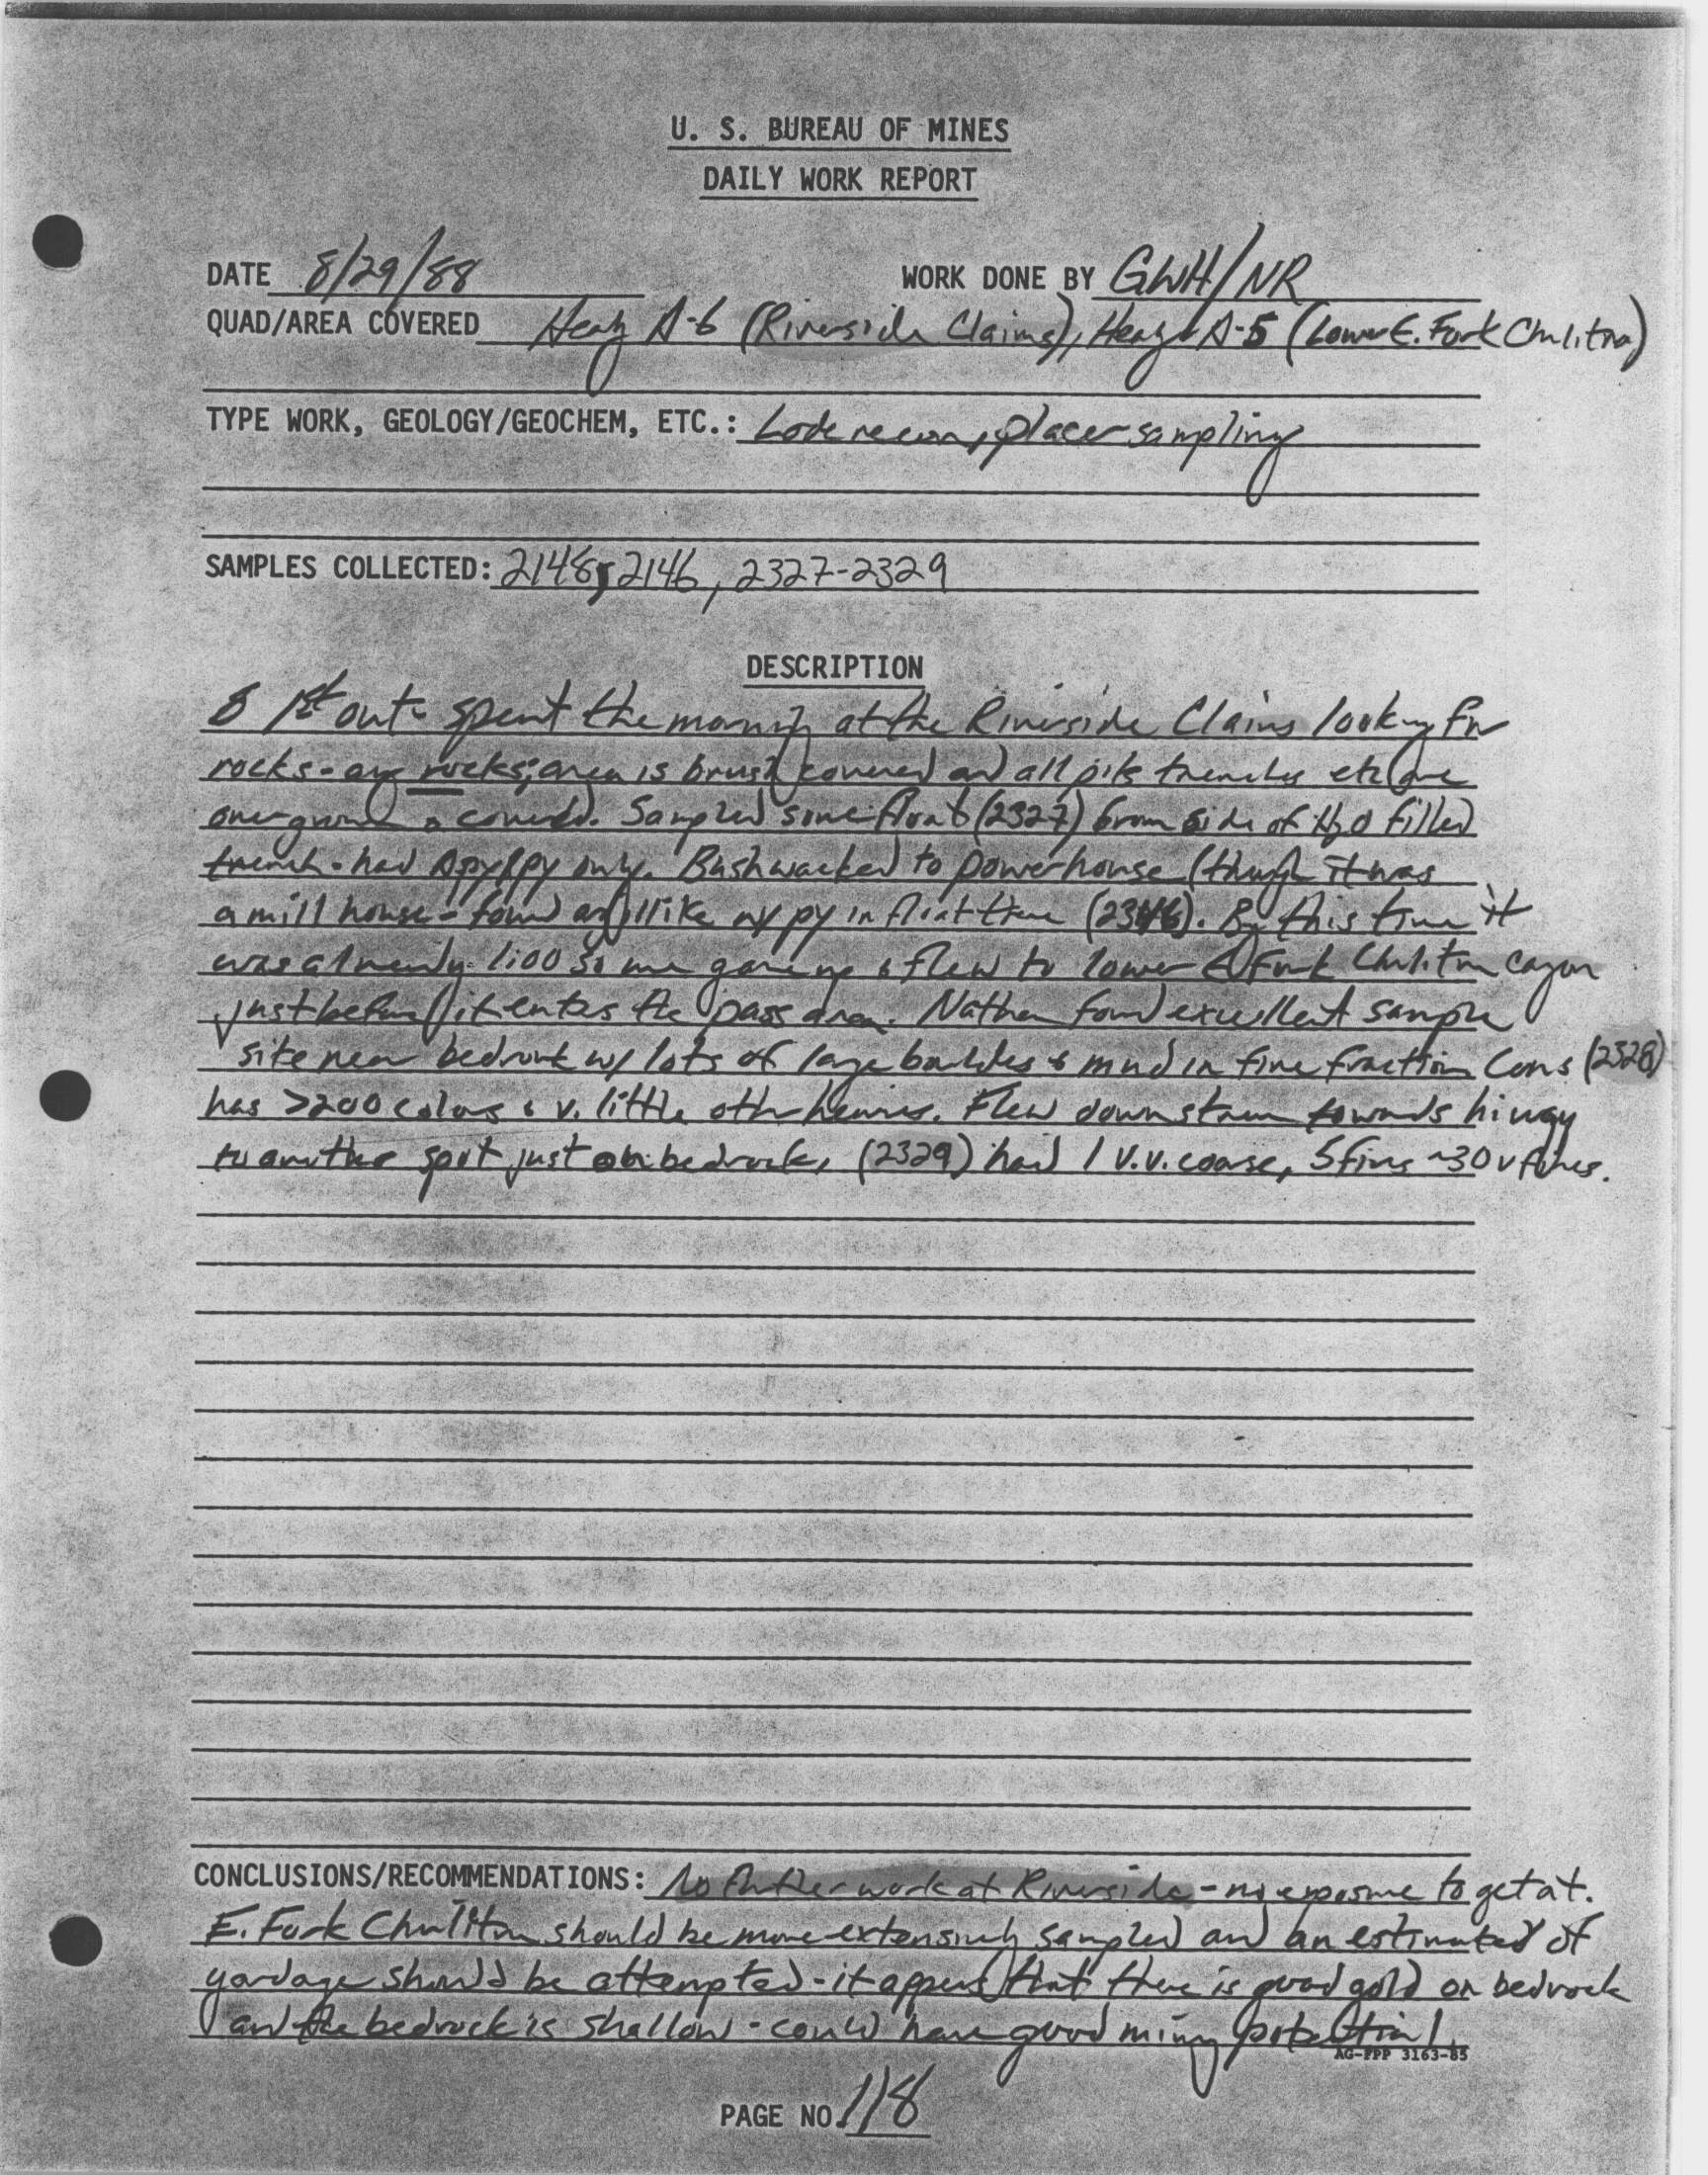 U. S. BUREAU OF MINES
DAILY WORK REPORT
DATE 8/29/88 WORK DONE BY GWH/NR
QUAD/AREA COVERED Healy A-6 (Riverside Claims), Healy A-5 (Lower E. Fork Chulitna)
TYPE WORK, GEOLOGY/GEOCHEM, ETC.: Lode recon, placer sampling
SAMPLES COLLECTED: 2148, 2146, 2327-2329
DESCRIPTION
1st out - spent the morning at the Riverside Claims looking for
rocks - any rocks; area is brush covered and all pits trenches etc are
overgrown & covered. Sampled some float (2327) from side of H2O filled
trench - had Apy/Ppy only. Bushwacked to powerhouse (though it was
a mill house - found like w/ py in float there By this time it
was already 1:00 so we gave up & flew to lower Fork Chulitna cayon
just before it enters the pass area. Nathan found excellent sample
site near bedrock w/ lots of large boulders & mud in fine fraction Cons (2328)
has >200 colors & v. little other heavies. Flew downstream towards hiway
to another spot just on bedrock, (2329) had 1 v.v. coarse, 5 fines ~30 v fines.
CONCLUSIONS/RECOMMENDATIONS: No further work at Riverside - no exposure to get at.
E. Fork Chulitna should be more extensively sampled and an estimated of
yardage should be attempted - it appears that there is good gold on bedrock
and the bedrock is shallow - could have good mining potential.
AG-FPP 3163-85
PAGE NO. 118